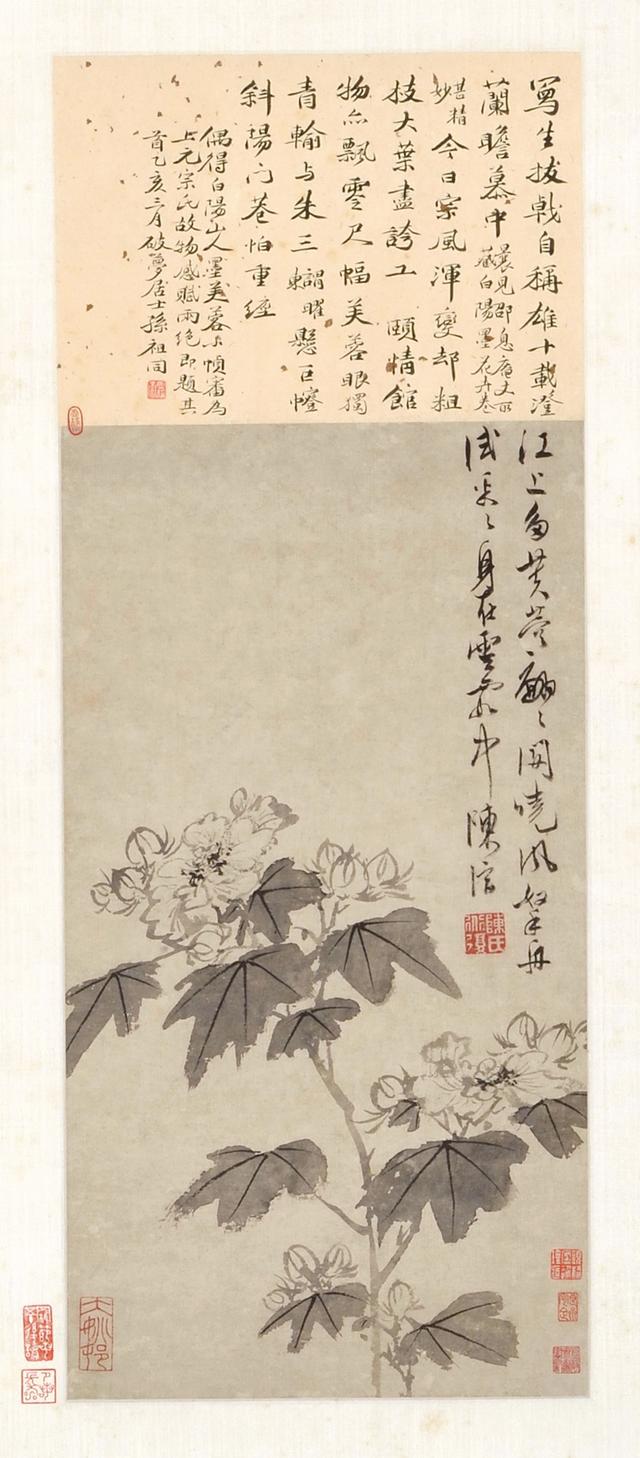 寫生拔戟自稱雄十載澄
蘭瞻慕中曩見邵息庵丈所
藏白陽墨花卉卷
甚精
妙
今日宗風渾變却粗
枝大葉盡誇工 頤情館
物亦飄零尺幅芙蓉眼獨
青輸與朱三懸巨
斜陽門巷怕重經
偶得白陽山人墨芙蓉小幀審為
上元宗氏故物感賦兩絕即題其
首乙亥三月破夢居士孫祖同
江上多芙蓉翩〻開曉風拏舟
試采〻身在雲霞中 陳淳
陳氏道復
大姚村